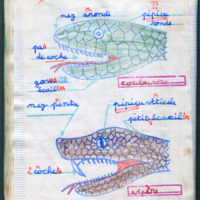 nez arondi
pupille
ronde
pas
de coche
écailles
couleuvre
nez pointu
pupille verticale
petites écailles
2 coches
vipère